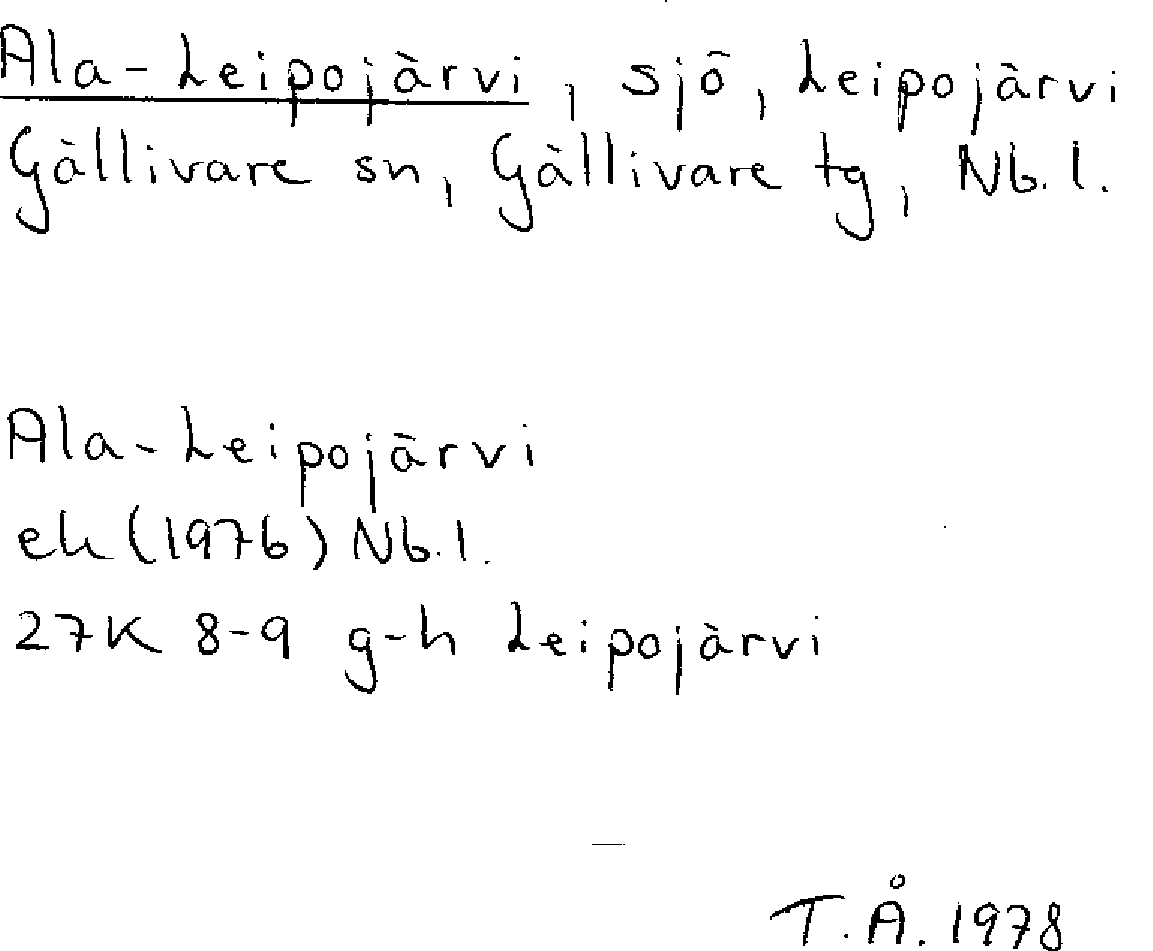 Ala-Leipojärvi, sjö, Leipojärvi
Gällivare sn, Gällivare tg, Nb.l.
Ala-Leipojärvi
ek (1976) Nb.l.
27K 8-9 g-h Leipojärvi
T.Å. 1978